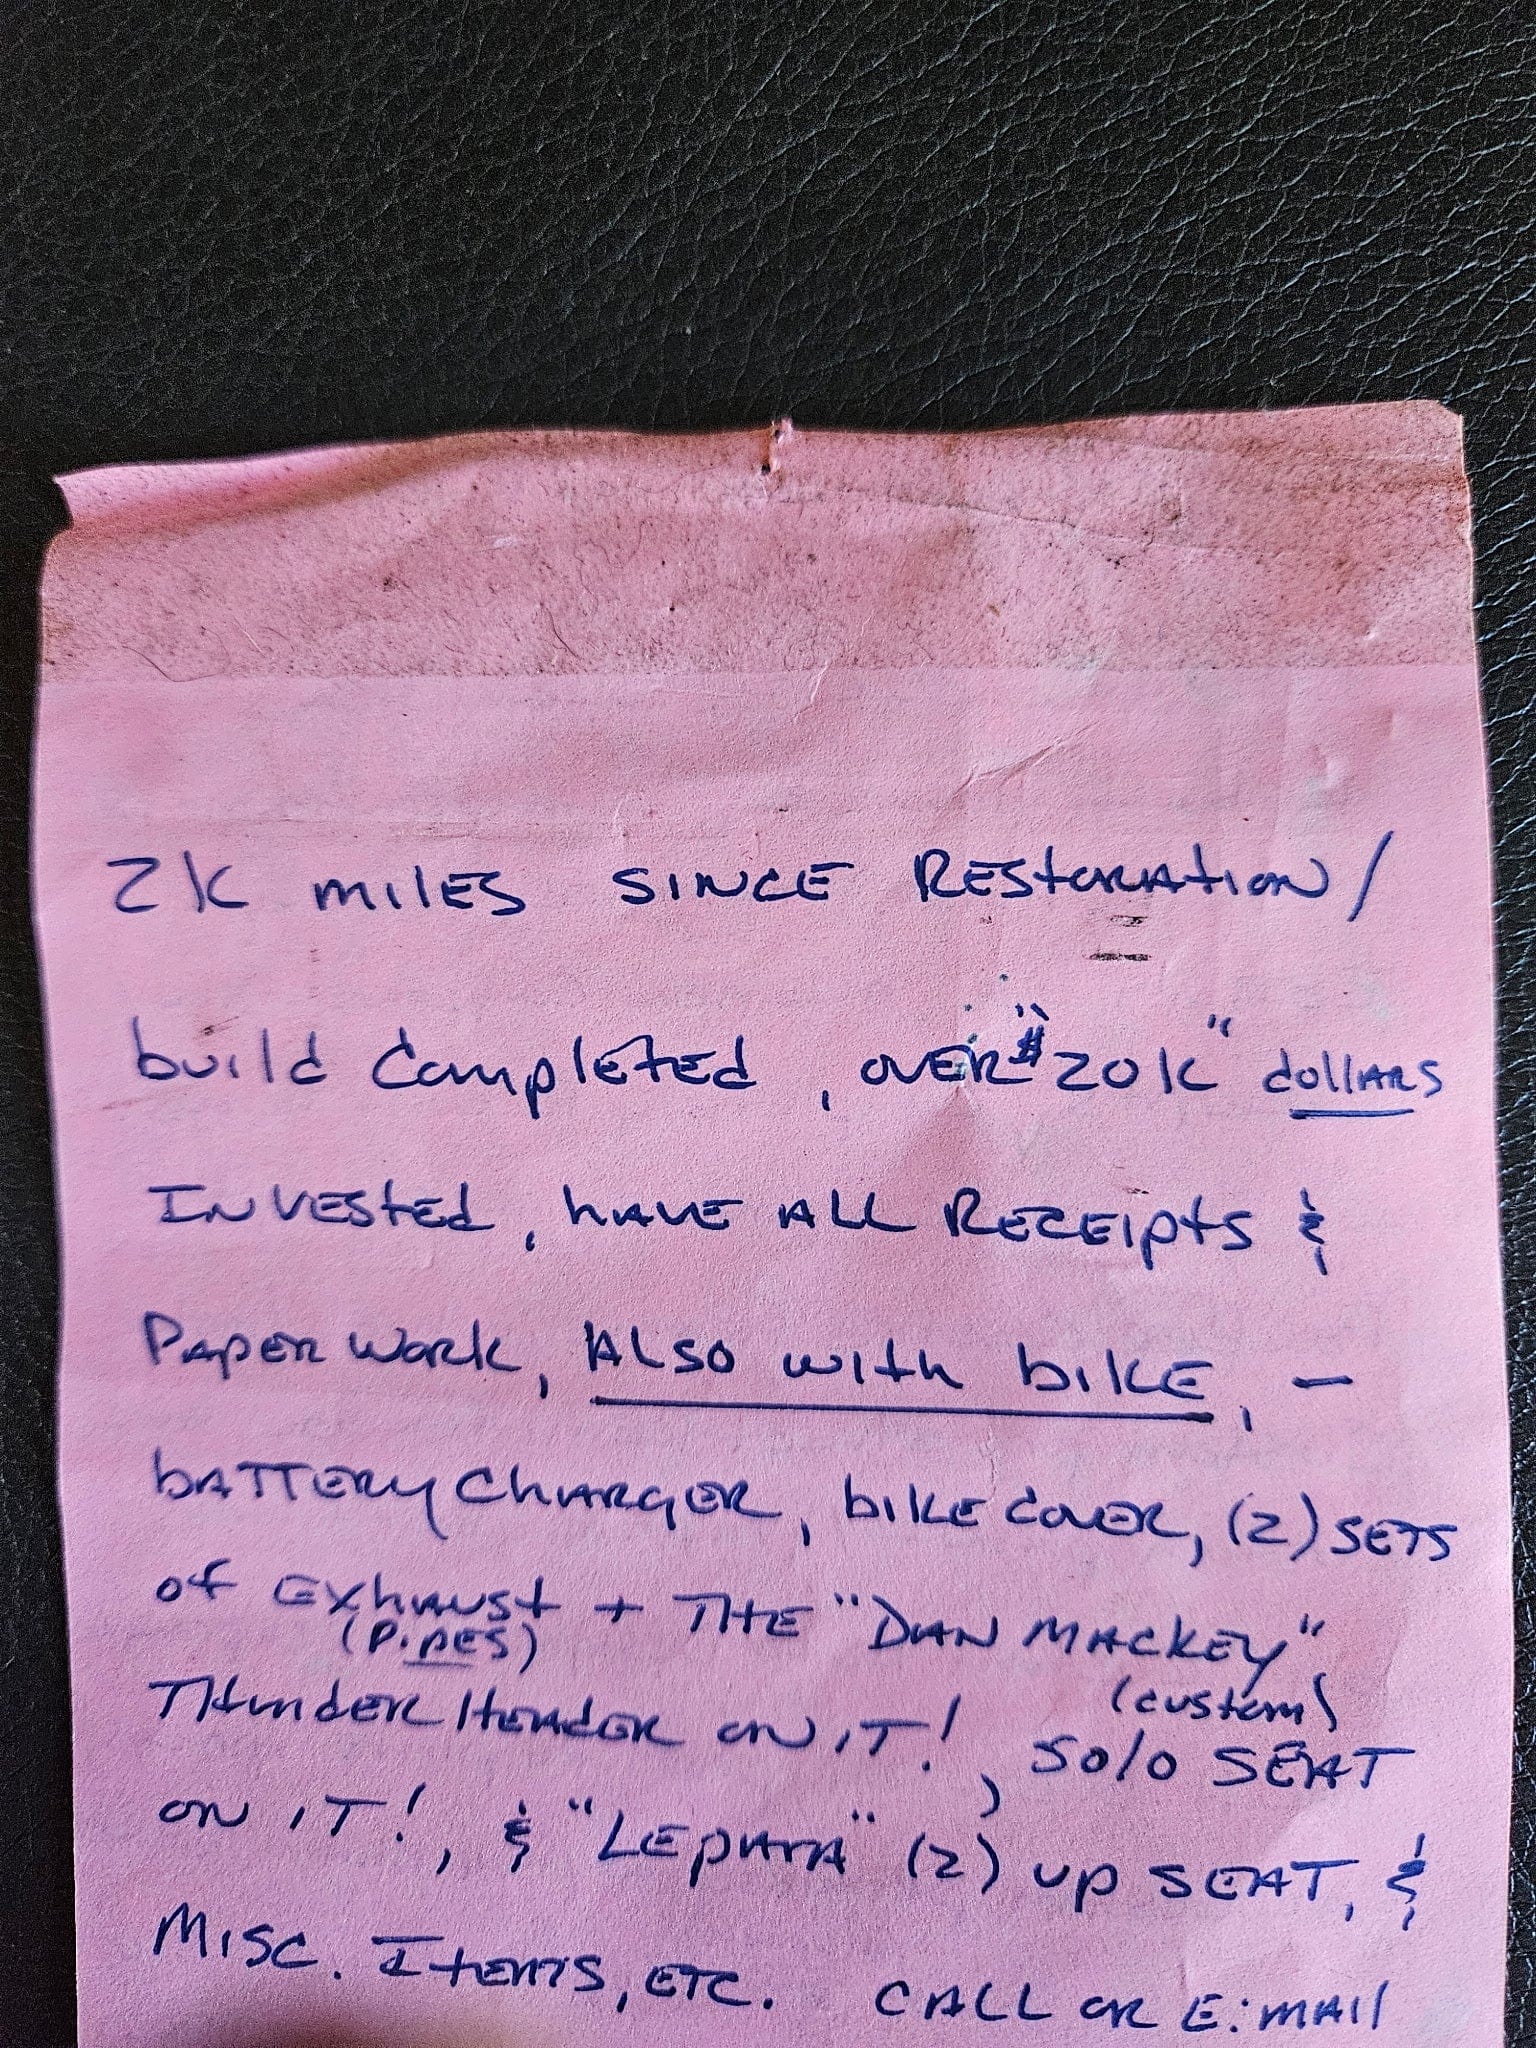 2K miles SINCE REStORAtION/
build Completed, OVER "$20K" dollARS
INVEStEd, hAVE ALL RECEIptS &
PAPER WORK, ALSO with bIKE, -
bATTERY ChARGER, bIKE COVER, (2) SETS
of EXhAUSt + THE "DAN MACKEY"
(PIPES)
THUNdER HEAdER ON IT!, SOlO SEAT
(custom)
ON IT!, & "LEpARA" (2) up SEAT, &
MISC. ItEMS, ETC. CALL OR E:MAIl